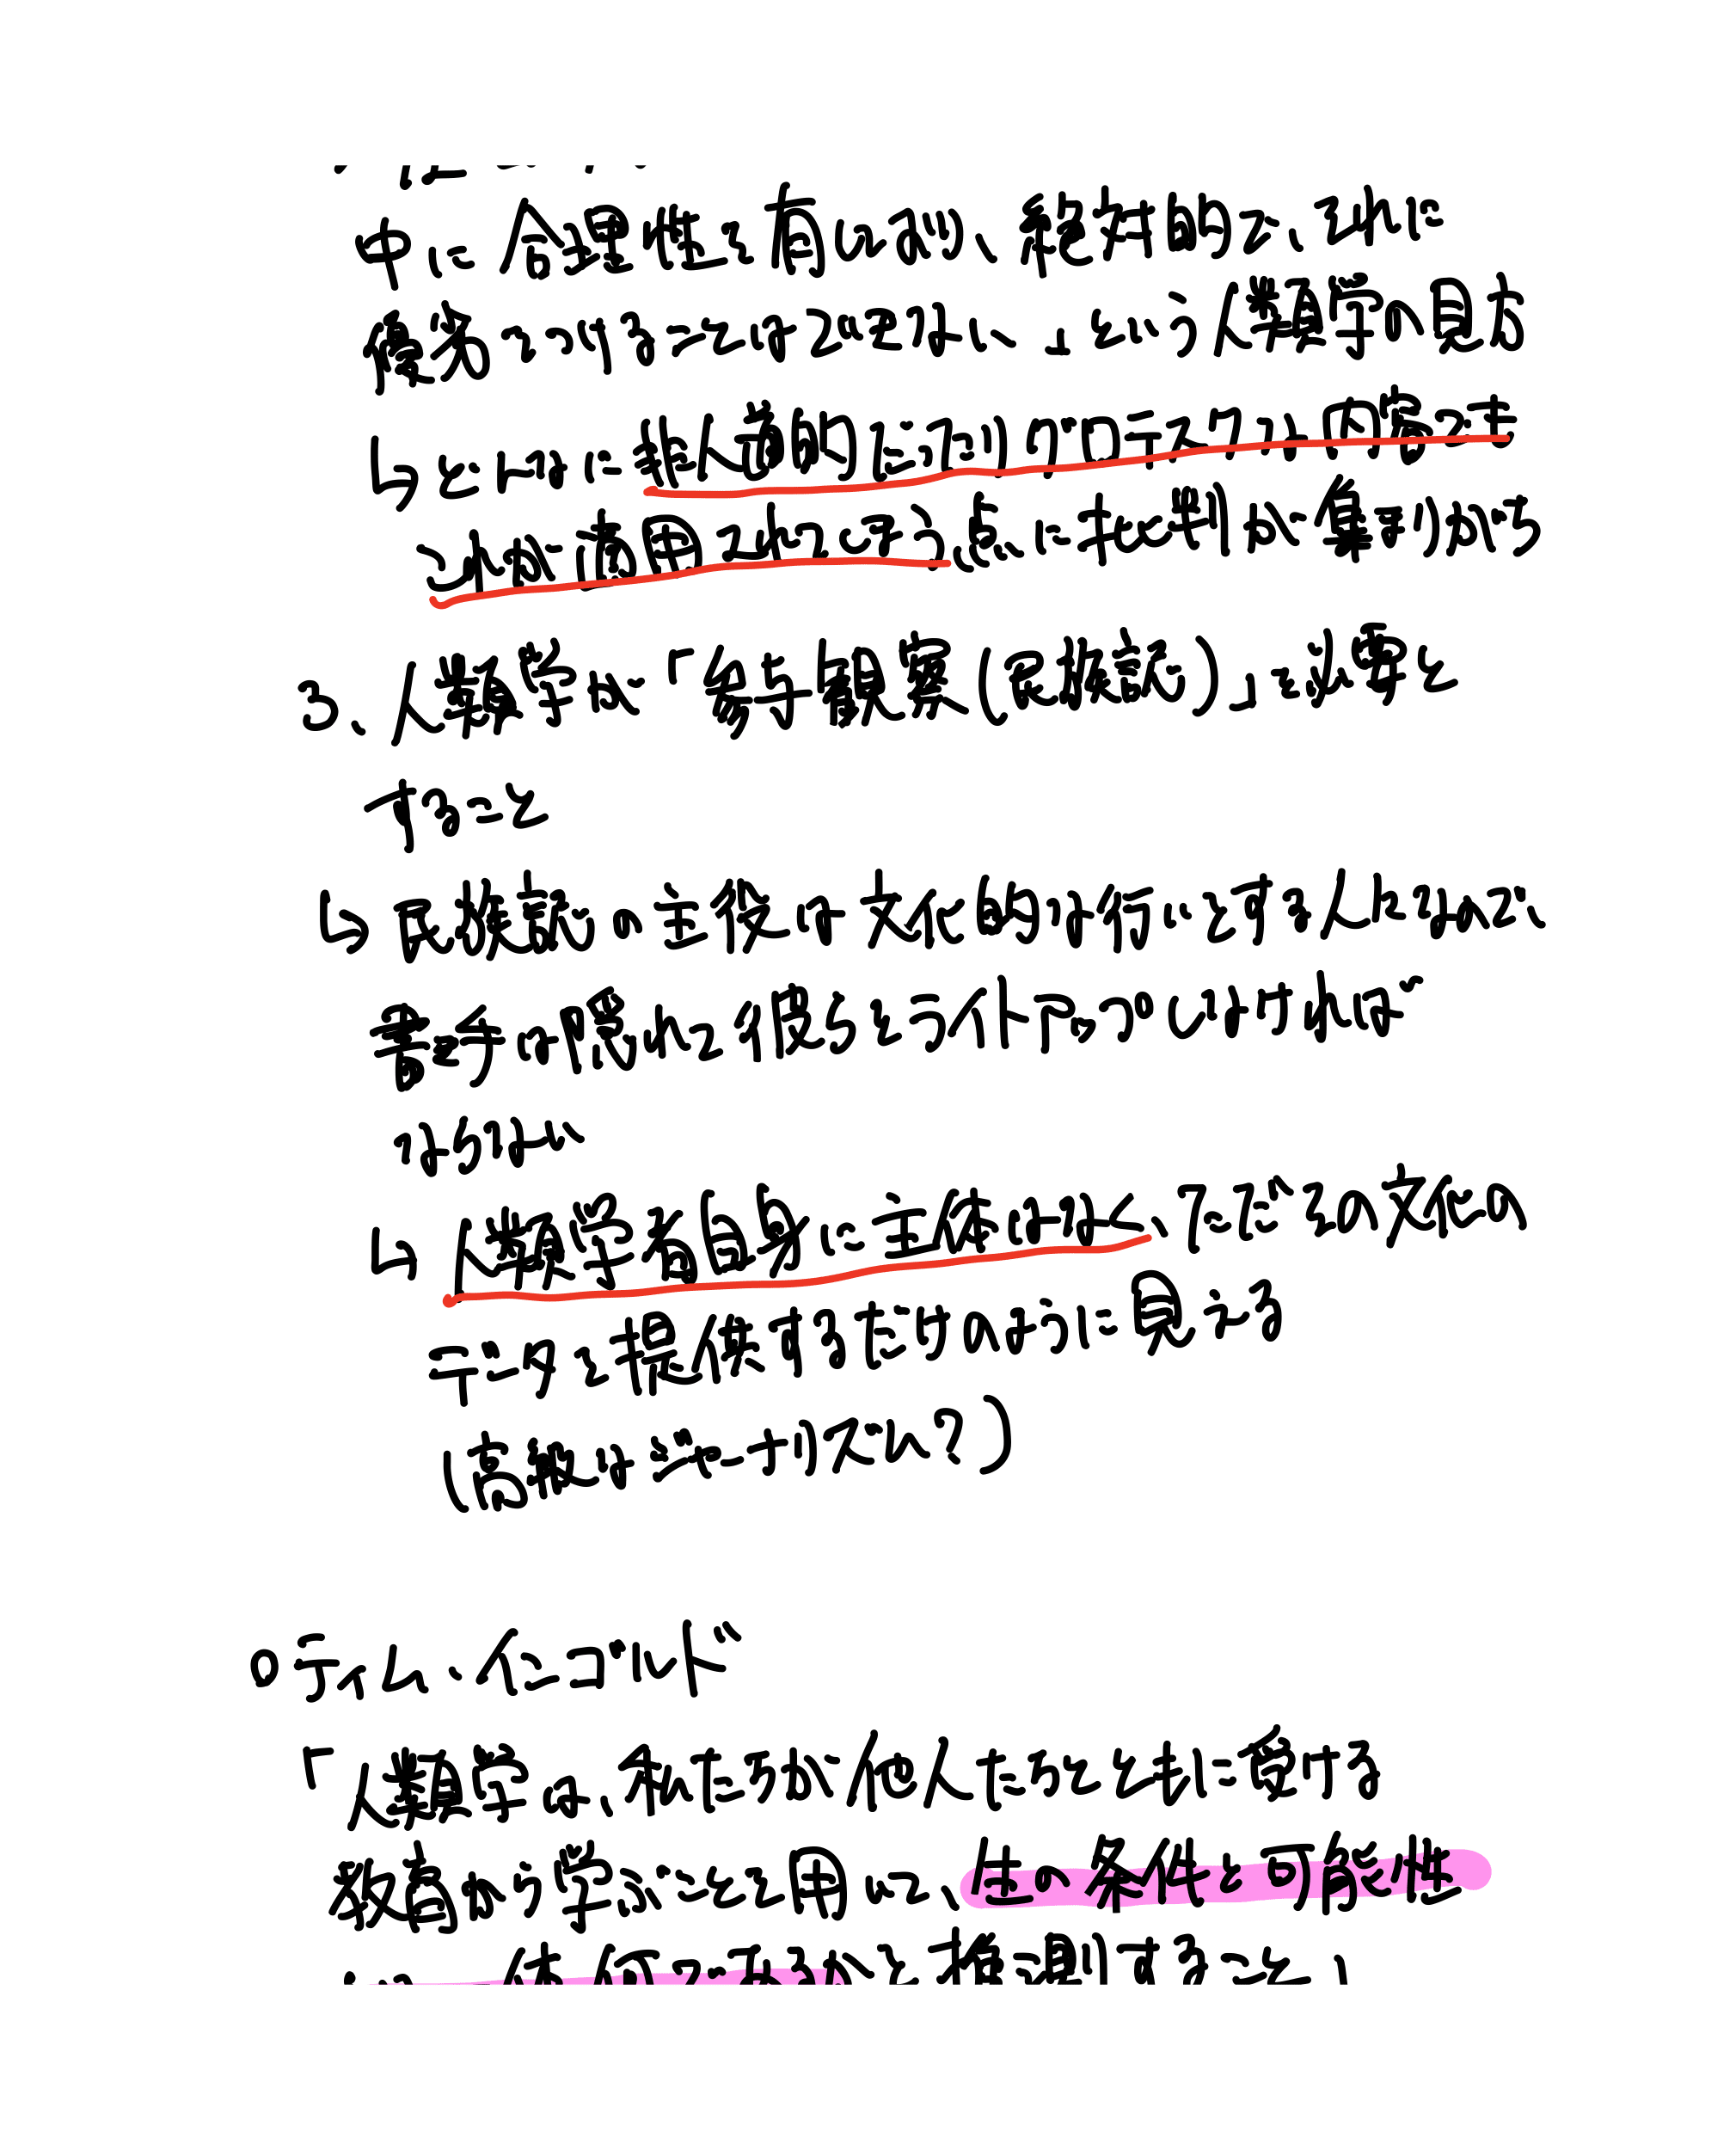 中に合理性を有しており、絶対的で、それに
優劣をつけることはできない、」という人類学の見方
↳どんなに非人道的だったりグロテスクな内容でも
これが適用されてしまう点に批判が集まりがち
3、人類学が「参与観察(民族誌)」を必要と
すること
↳民族誌の主役は文化的な行いをする人になので、
書き手は隠れて彼らをライトアップしなければ
ならない
↳人類学者自身に主体はなく、ただその文化の
データを提供するだけのように見える
(高級なジャーナリズム?)
○ティム・インゴルド
「人類学は、私たちが他人たちとともに受ける
教育から学ぶことを用いて、生の条件と可能性
何であるかを推測すること」